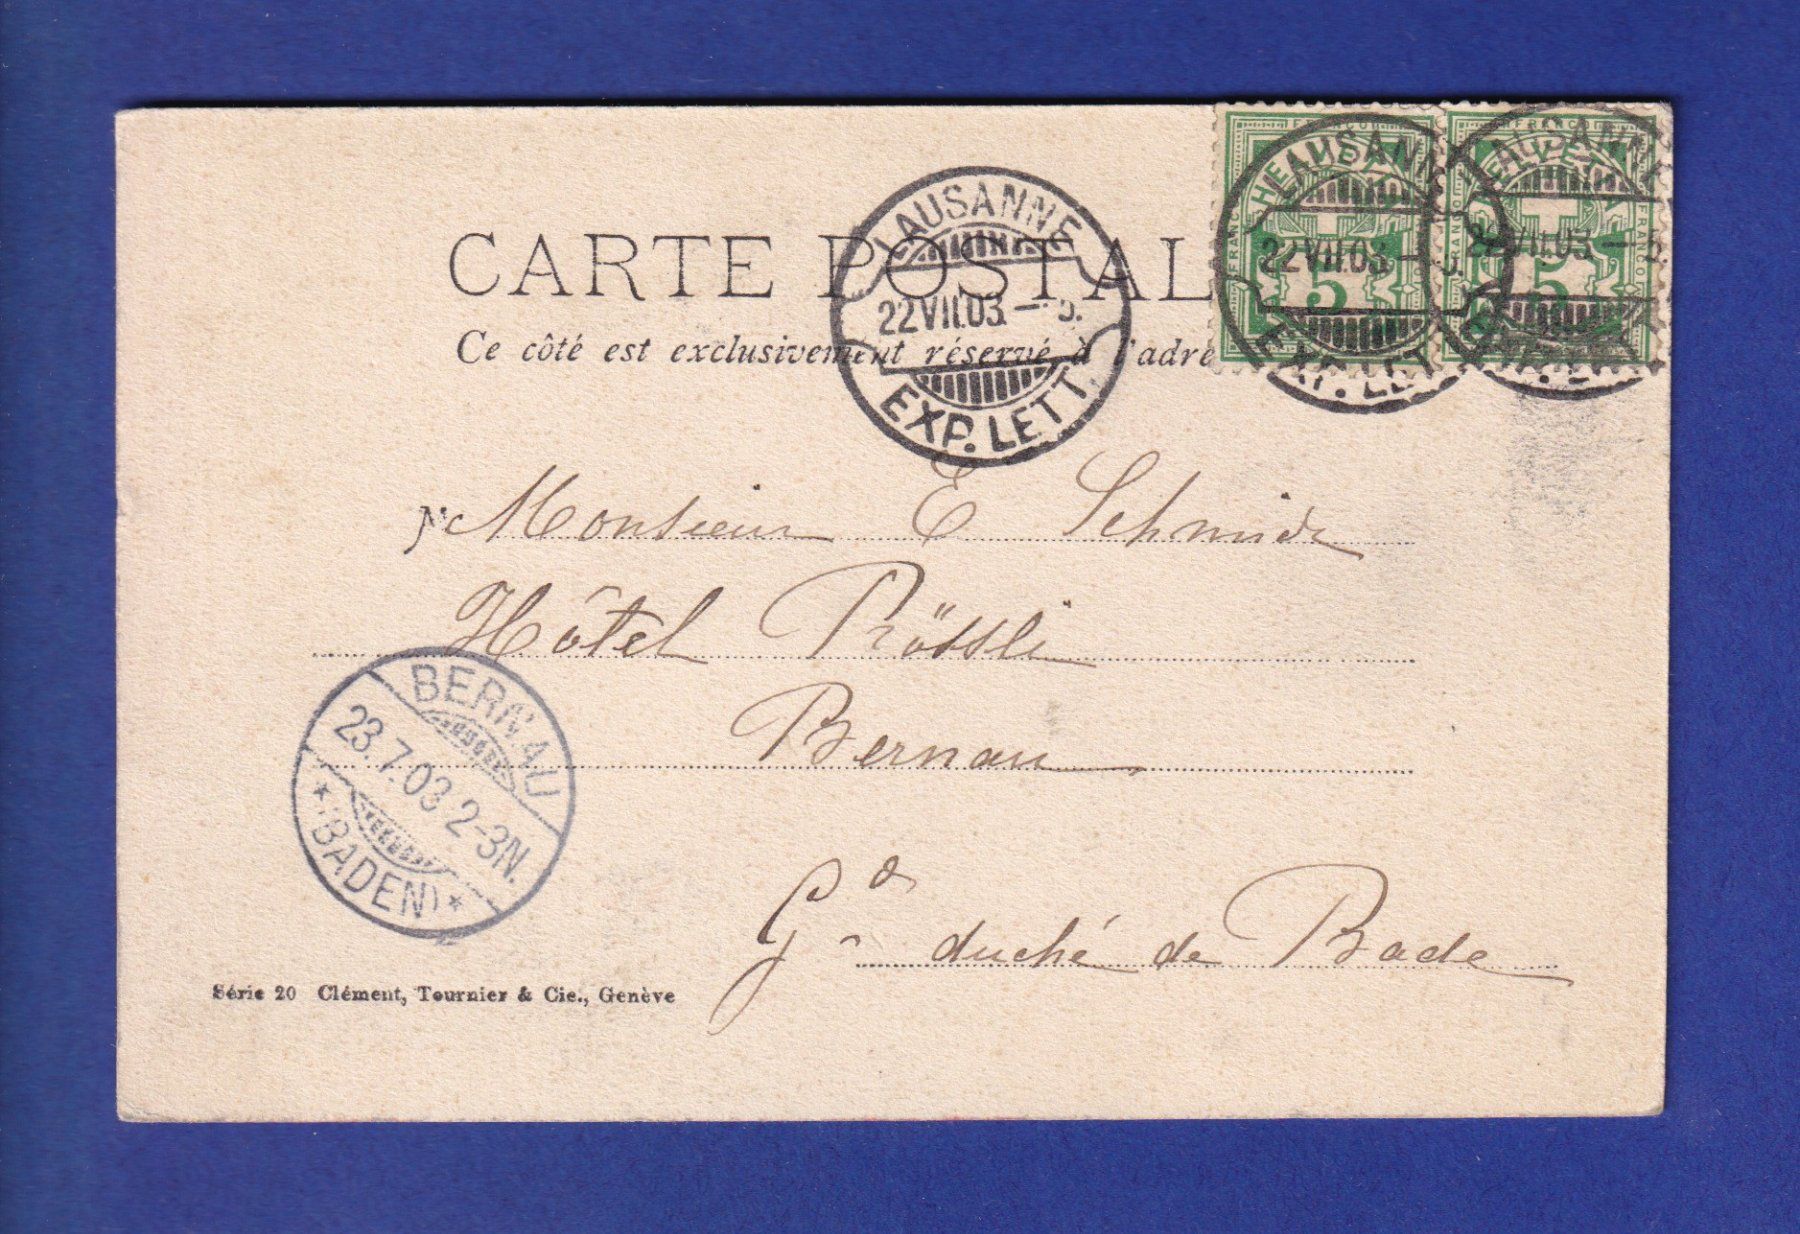 CARTE POSTAL
Ce côté est exclusivement réservé à l'adre
LAUSANNE
22 VII.03.
EXP. LETT.
HELVETIA
FRANCO
5
LAUSANNE
22 VII.03.
EXP. LETT.
HELVETIA
FRANCO
5
LAUSANNE
22 VII.03.
Monsieur E Schmidt
Hôtel Rössli
Bernau
Gd duché de Bade
BERNAU
23.7.03 2-3N.
(BADEN)
Série 20 Clément, Tournier & Cie., Genève